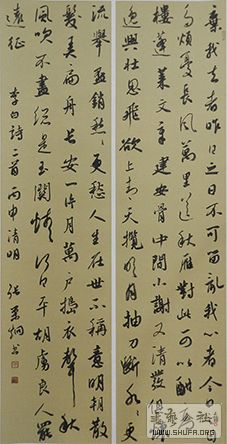 棄我去者昨日之日不可留亂我心者今日之日
多煩憂長風萬里送秋雁對此可以酣高
樓蓬萊文章建安骨中間小謝又清發俱懷
逸興壯思飛欲上青天攬明月抽刀斷水〻更
流舉杯銷愁〻更愁人生在世不稱意明朝散
髮弄扁舟長安一片月萬戶搗衣聲秋
風吹不盡總是玉關情何日平胡虜良人罷
遠征 李白詩二首丙申清明 張 炯書
WWW.SHUFA.ORG